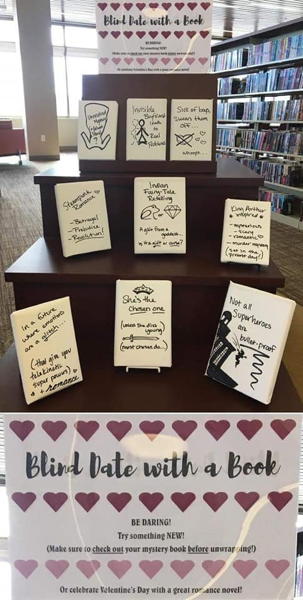 Blind Date with a Book
BE DARING!
Try something NEW!
(Make sure to check out your mystery book before unwrapping!)
Or celebrate Valentine's Day with a great romance novel!
Invisible
Boyfriend
leads
to Real
Problems
Sick of boys,
Swears them
off...
whoops...
Steampunk
Romance
-Betrayal
-Prejudice
-Rebellion!
Indian
Fairy-Tale
Retelling
or
A gift from a
goddess...
is it a gift or curse?
King Arthur
inspired
-mysterious
-scary
-romantic
-murder mystery
(set in the
present day)
In a future
where
are a glitch...
(that give you
telekinetic
super powers)
+ romance
She's the
chosen one
(unless she dies
young)
(must choose do...)
Not all
Superheroes
are
bullet-proof
Blind Date with a Book
BE DARING!
Try something NEW!
(Make sure to check out your mystery book before unwrapping!)
Or celebrate Valentine's Day with a great romance novel!